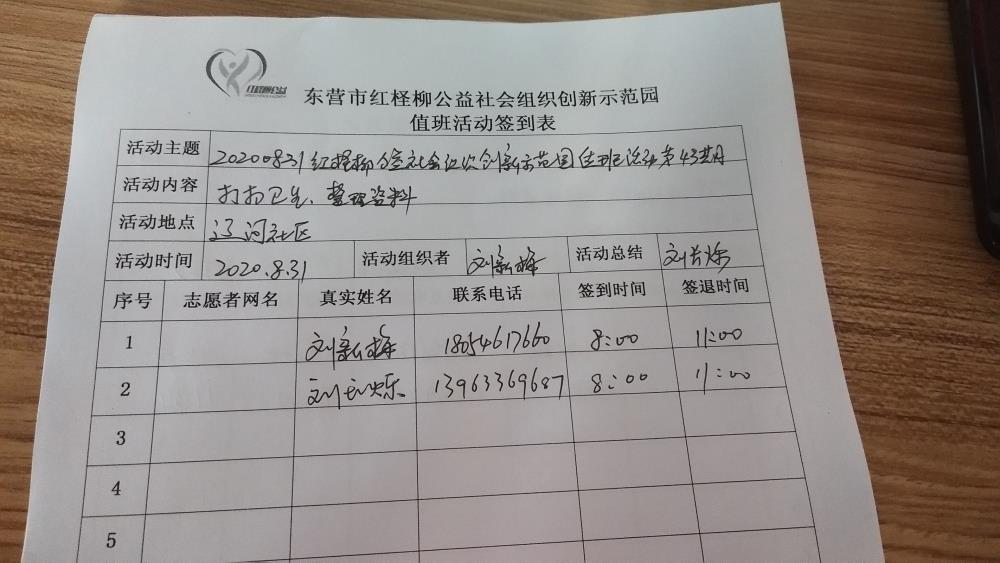 红柽柳公益
东营市红柽柳公益社会组织创新示范园
值班活动签到表
活动主题 20200831红柽柳公益社会组织创新示范园值班活动第43期
活动内容 打扫卫生、整理资料
活动地点 辽河社区
活动时间 2020.8.31 活动组织者 刘新梅 活动总结 刘
序号 志愿者网名 真实姓名 联系电话 签到时间 签退时间
1 刘新梅 18054617660 8:00 11:00
2 刘 13963369687 8:00 11:00
3
4
5